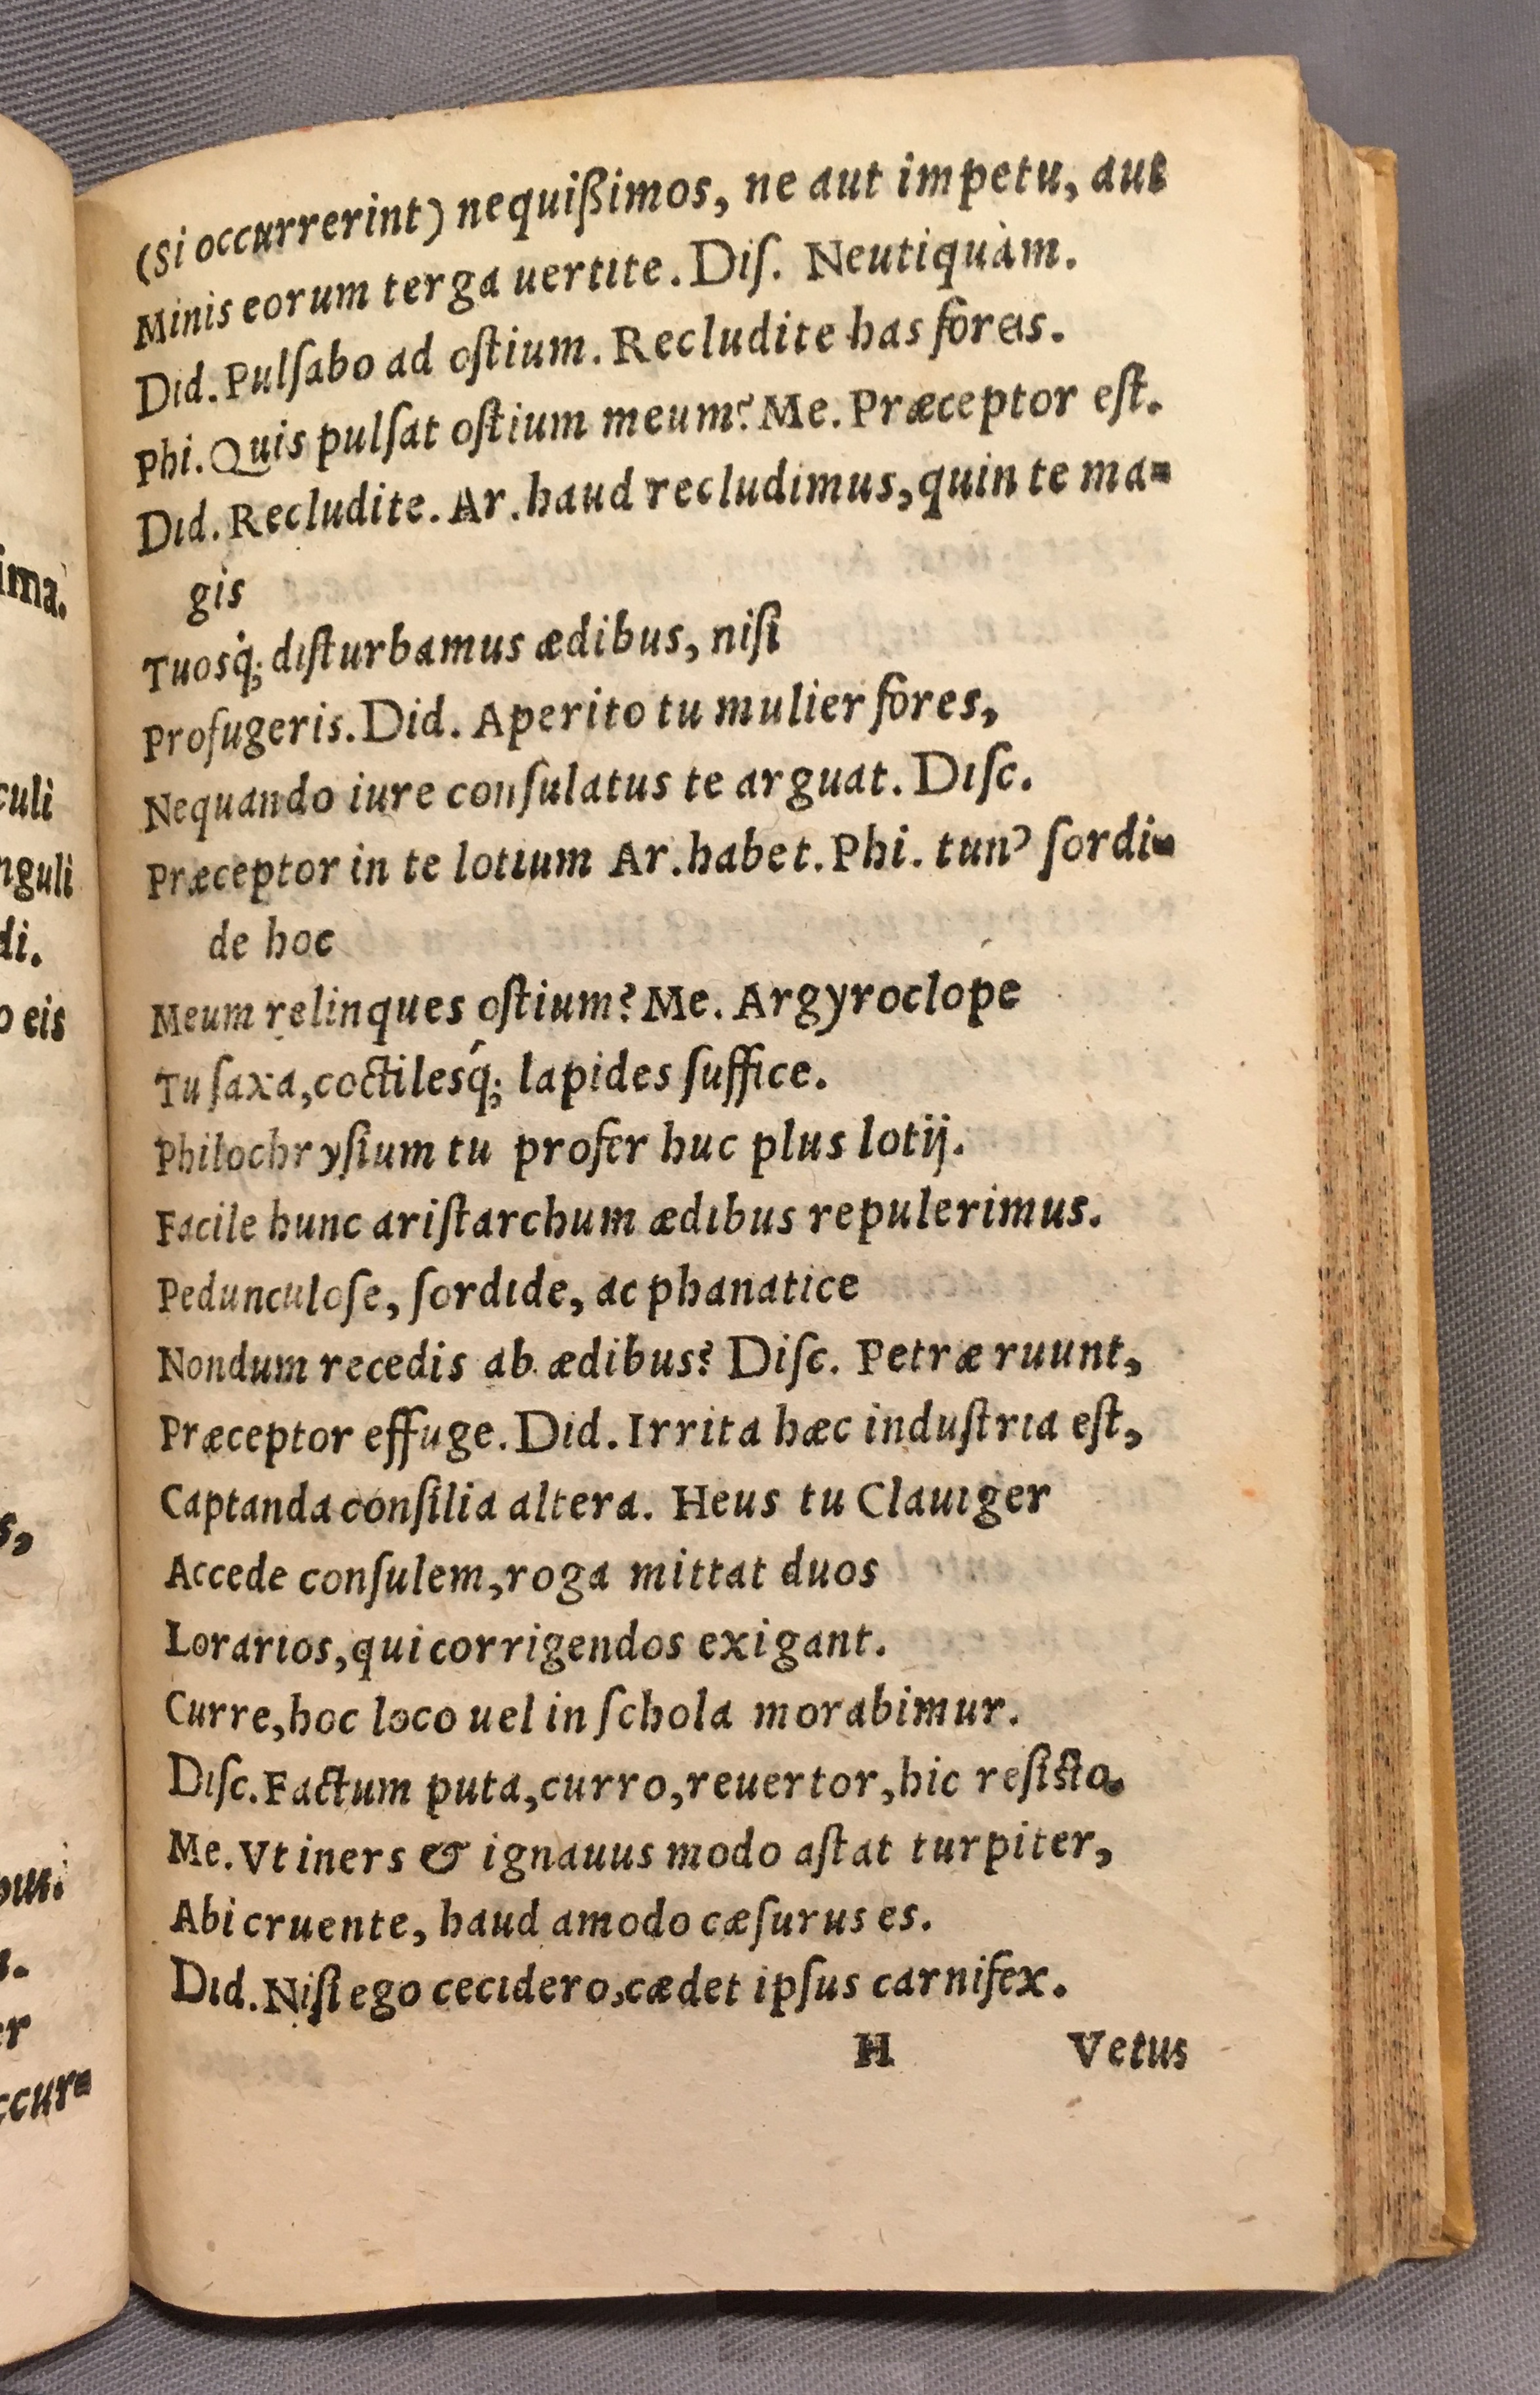 (Si occurrerint) nequißimos, ne aut impetu, aut
Minis eorum terga uertite. Diſ. Neutiquàm.
Did. Pulſabo ad oſtium. Recludite has fores.
Phi. Quis pulſat oſtium meum? Me. Præceptor eſt.
Did. Recludite. Ar. haud recludimus, quin te ma-
gis
Tuosq́; diſturbamus ædibus, niſi
Profugeris. Did. Aperito tu mulier fores,
Nequando iure conſulatus te arguat. Diſc.
Præceptor in te lotium Ar. habet. Phi. tun' ſordi-
de hoc
Meum relinques oſtium? Me. Argyroclope
Tu ſaxa, coctilesq́; lapides ſuffice.
Philochryſium tu profer huc plus lotij.
Facile hunc ariſtarchum ædibus repulerimus.
Pedunculoſe, ſordide, ac phanatice
Nondum recedis ab ædibus? Diſc. Petræ ruunt,
Præceptor effuge. Did. Irrita hæc induſtria eſt,
Captanda conſilia altera. Heus tu Clauiger
Accede conſulem, roga mittat duos
Lorarios, qui corrigendos exigant.
Curre, hoc loco uel in ſchola morabimur.
Diſc. Factum puta, curro, reuertor, hic reſiſto.
Me. Vt iners & ignauus modo aſtat turpiter,
Abi cruente, haud amodo cæſurus es.
Did. Niſi ego cecidero, cædet ipſus carnifex.
H Vetus